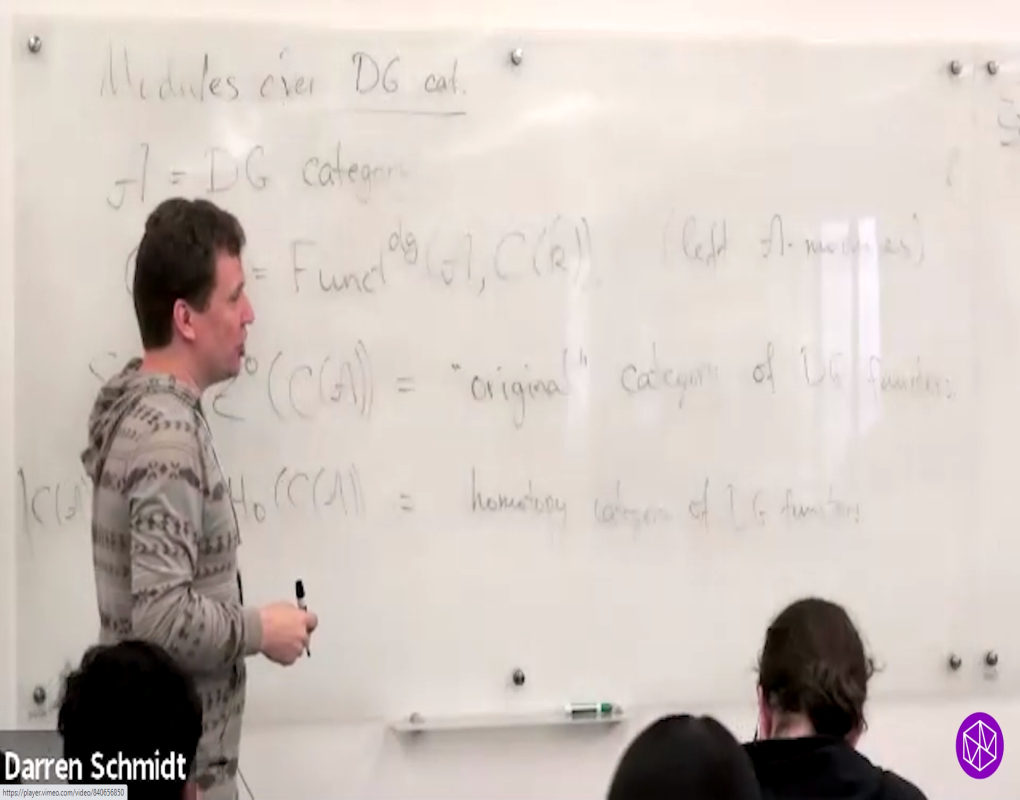 Modules over DG cat.
A = DG category
= Funct^dg (A, C(k)). (left A-modules)
Z^0 (C(A)) = "original" category of DG functors.
K(A) H_0 (C(A)) = homotopy category of DG functors
Darren Schmidt
https://player.vimeo.com/video/840656850